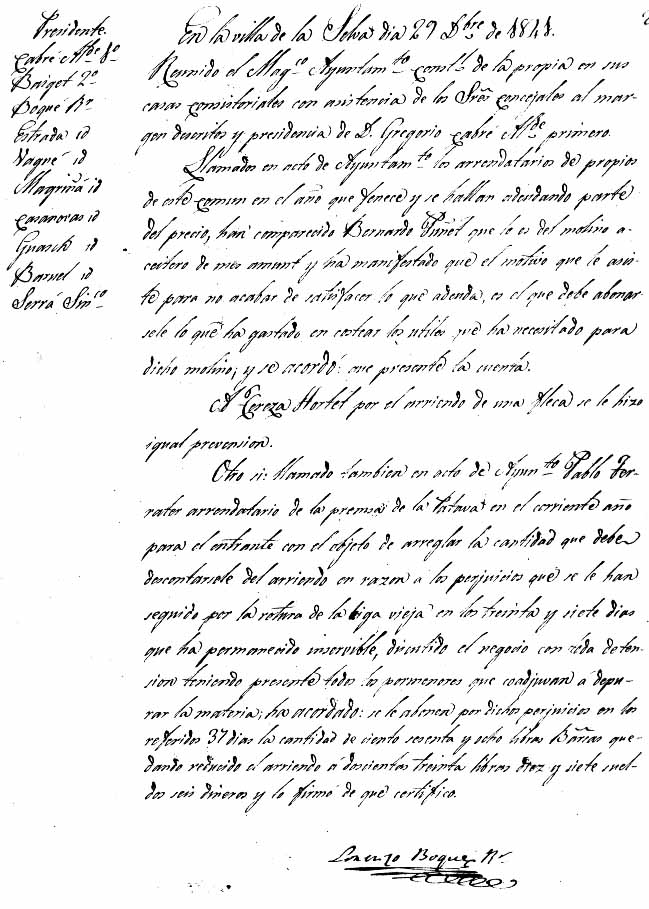 Presidente.
Cabré Alde. 1º
Baiget 2º
Boqué Rr.
Estrada id
Vaqué id
Magriñá id
Casanovas id
Guasch id
Baruel id
Serrá Sínco.
En la villa de la Selva dia 29 Dbre. de 1841.
Reunido el Magco. Ayuntamto. constl. de la propia en sus
casas consistoriales con asistencia de los Sres. concejales al mar-
gen descritos y presidencia de D. Gregorio Cabré Alde. primero.
Llamados en acto de Ayuntamto. los arrendatarios de propios
de este comun en el año que fenece y se hallan adeudando parte
del precio, han comparecido Bernardo que lo es del molino a-
ceitero de mes amunt y ha manifestado que el motivo que le asis-
te para no acabar de satisfacer lo que adeuda, es el que debe abonar-
sele lo que ha gastado en costear los utiles que ha necesitado para
dicho molino; y se acordó: que presente la cuenta.
A Tereza Hortet por el arriendo de una fleca se le hizo
igual prevension.
Otro si: llamado tambien en acto de Ayunto. Pablo Fer-
rater arrendatario de la premsa de la Patava en el corriente año
para el entrante con el objeto de arreglar la cantidad que deba
descontarsele del arriendo en razon a los perjuicios que se le han
seguido por la rotura de la biga vieja en los treinta y siete dias
que ha permanecido inservible, discutido el negocio con toda deten-
sion teniendo presente todos los pormenores que coadjuvan á depu-
rar la materia; ha acordado: se le abonen por dichos perjuicios en los
referidos 37 dias la cantidad de ciento sesenta y ocho libras Barsas. que-
dando reducido el arriendo á doscientas treinta libras diez y siete suel-
dos seis dineros y lo firmó de que certifico.
Lorenzo Boqué Rr.